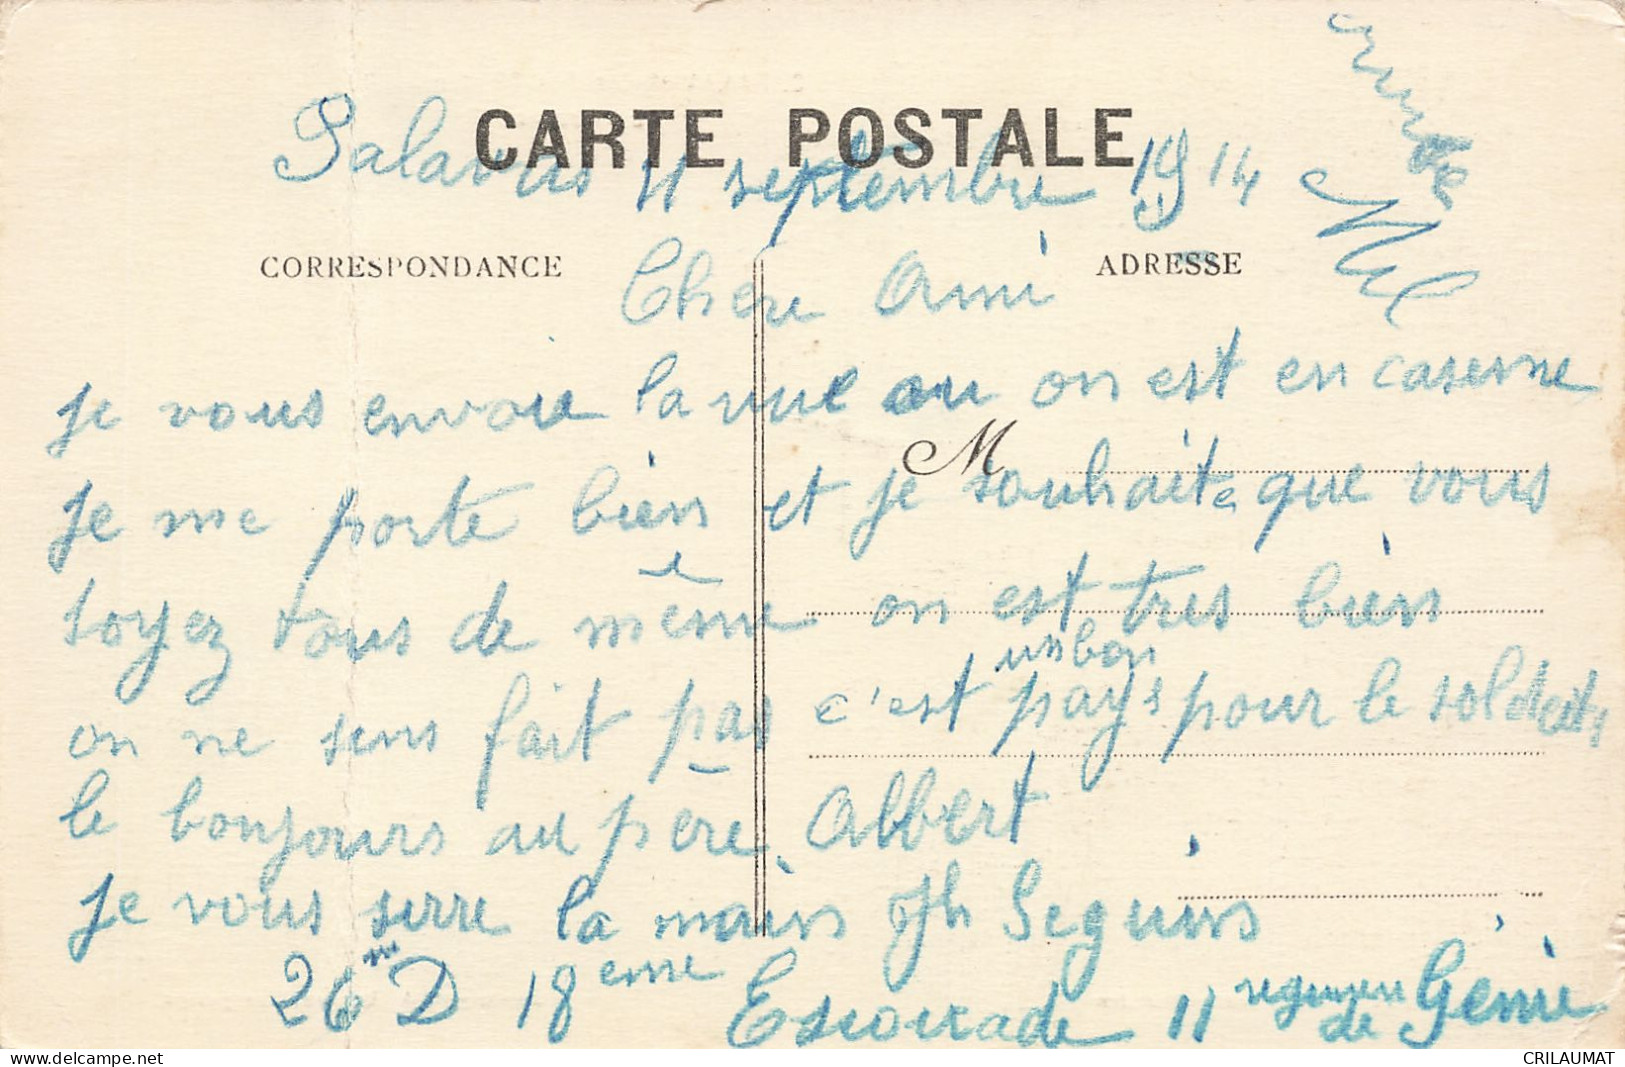 CARTE POSTALE
Palavas 11 septembre 1914
CORRESPONDANCE
ADRESSE
Chere Ami
je vous envoie la vue ou on est en caserne
M
je me porte bien et je souhaite que vous
soyez tous de même on est tres bien
on ne sens fait pas c'est un bon pays pour le soldats
le bonjours au père Albert
je vous serre la main Jh Seguins
26 D 18eme Escouade 11 regiment de Génie
delcampe.net
CRILAUMAT